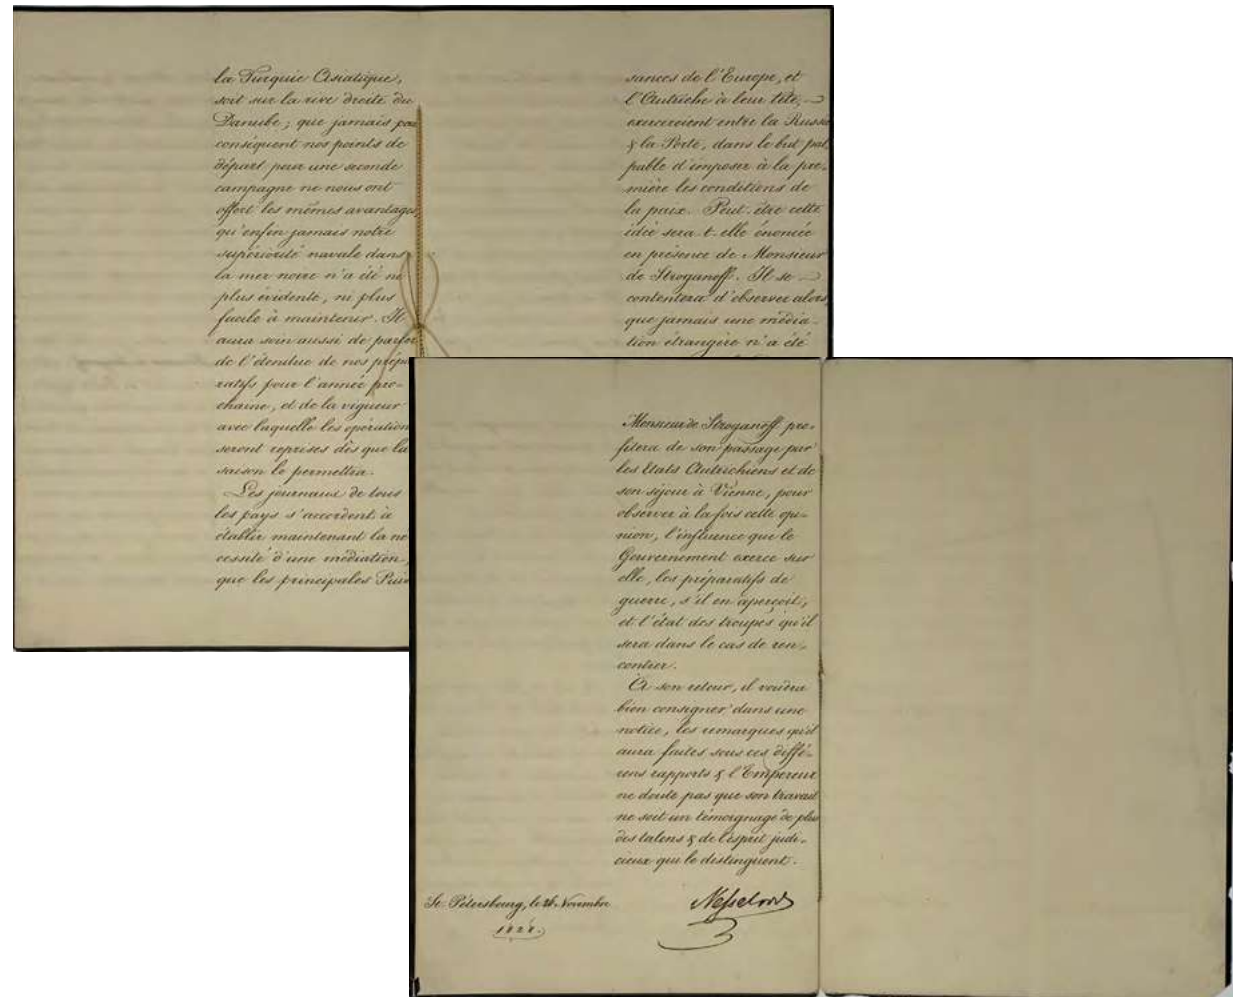 la Turquie Asiatique,
soit sur la rive droite du
Danube; que jamais par
conséquent nos points de
départ pour une seconde
campagne ne nous ont
offert les mêmes avantages,
qu'enfin jamais notre
supériorité navale dans
la mer noire n'a été ni
plus évidente, ni plus
facile à maintenir. Il
aura soin aussi de parler
de l'étendue de nos prépa
ratifs pour l'année pro-
chaine, et de la vigueur
avec laquelle les opération
seront reprises dès que la
saison le permettra.
Les journaux de tous
les pays s'accordent à
établir maintenant la né
cessité d'une médiation,
que les principales Puis
sances de l'Europe, et
l'Autriche à leur tête,
exerceroient entre la Russie
& la Porte, dans le but pal
pable d'imposer à la pre-
mière les conditions de
la paix. Peut-être cette
idée sera-t-elle énoncée
en présence de Monsieur
de Stroganoff. Il se
contentera d'observer alors,
que jamais une média-
tion étrangère n'a été
Monsieur de Stroganoff pro-
fitera de son passage par
les Etats Autrichiens et de
son séjour à Vienne, pour
observer à la fois cette opi-
nion, l'influence que le
Gouvernement exerce sur
elle, les préparatifs de
guerre, s'il en aperçoit,
et l'état des troupes qu'il
sera dans le cas de ren-
contrer.
A son retour, il voudra
bien consigner dans une
notice, les remarques qu'il
aura faites sous ces diffé-
rens rapports & l'Empereur
ne doute pas que son travail
ne soit un témoignage de plus
des talens & de l'esprit judi-
cieux qui le distinguent.
St. Pétersbourg, le Novembre
Nesselrode